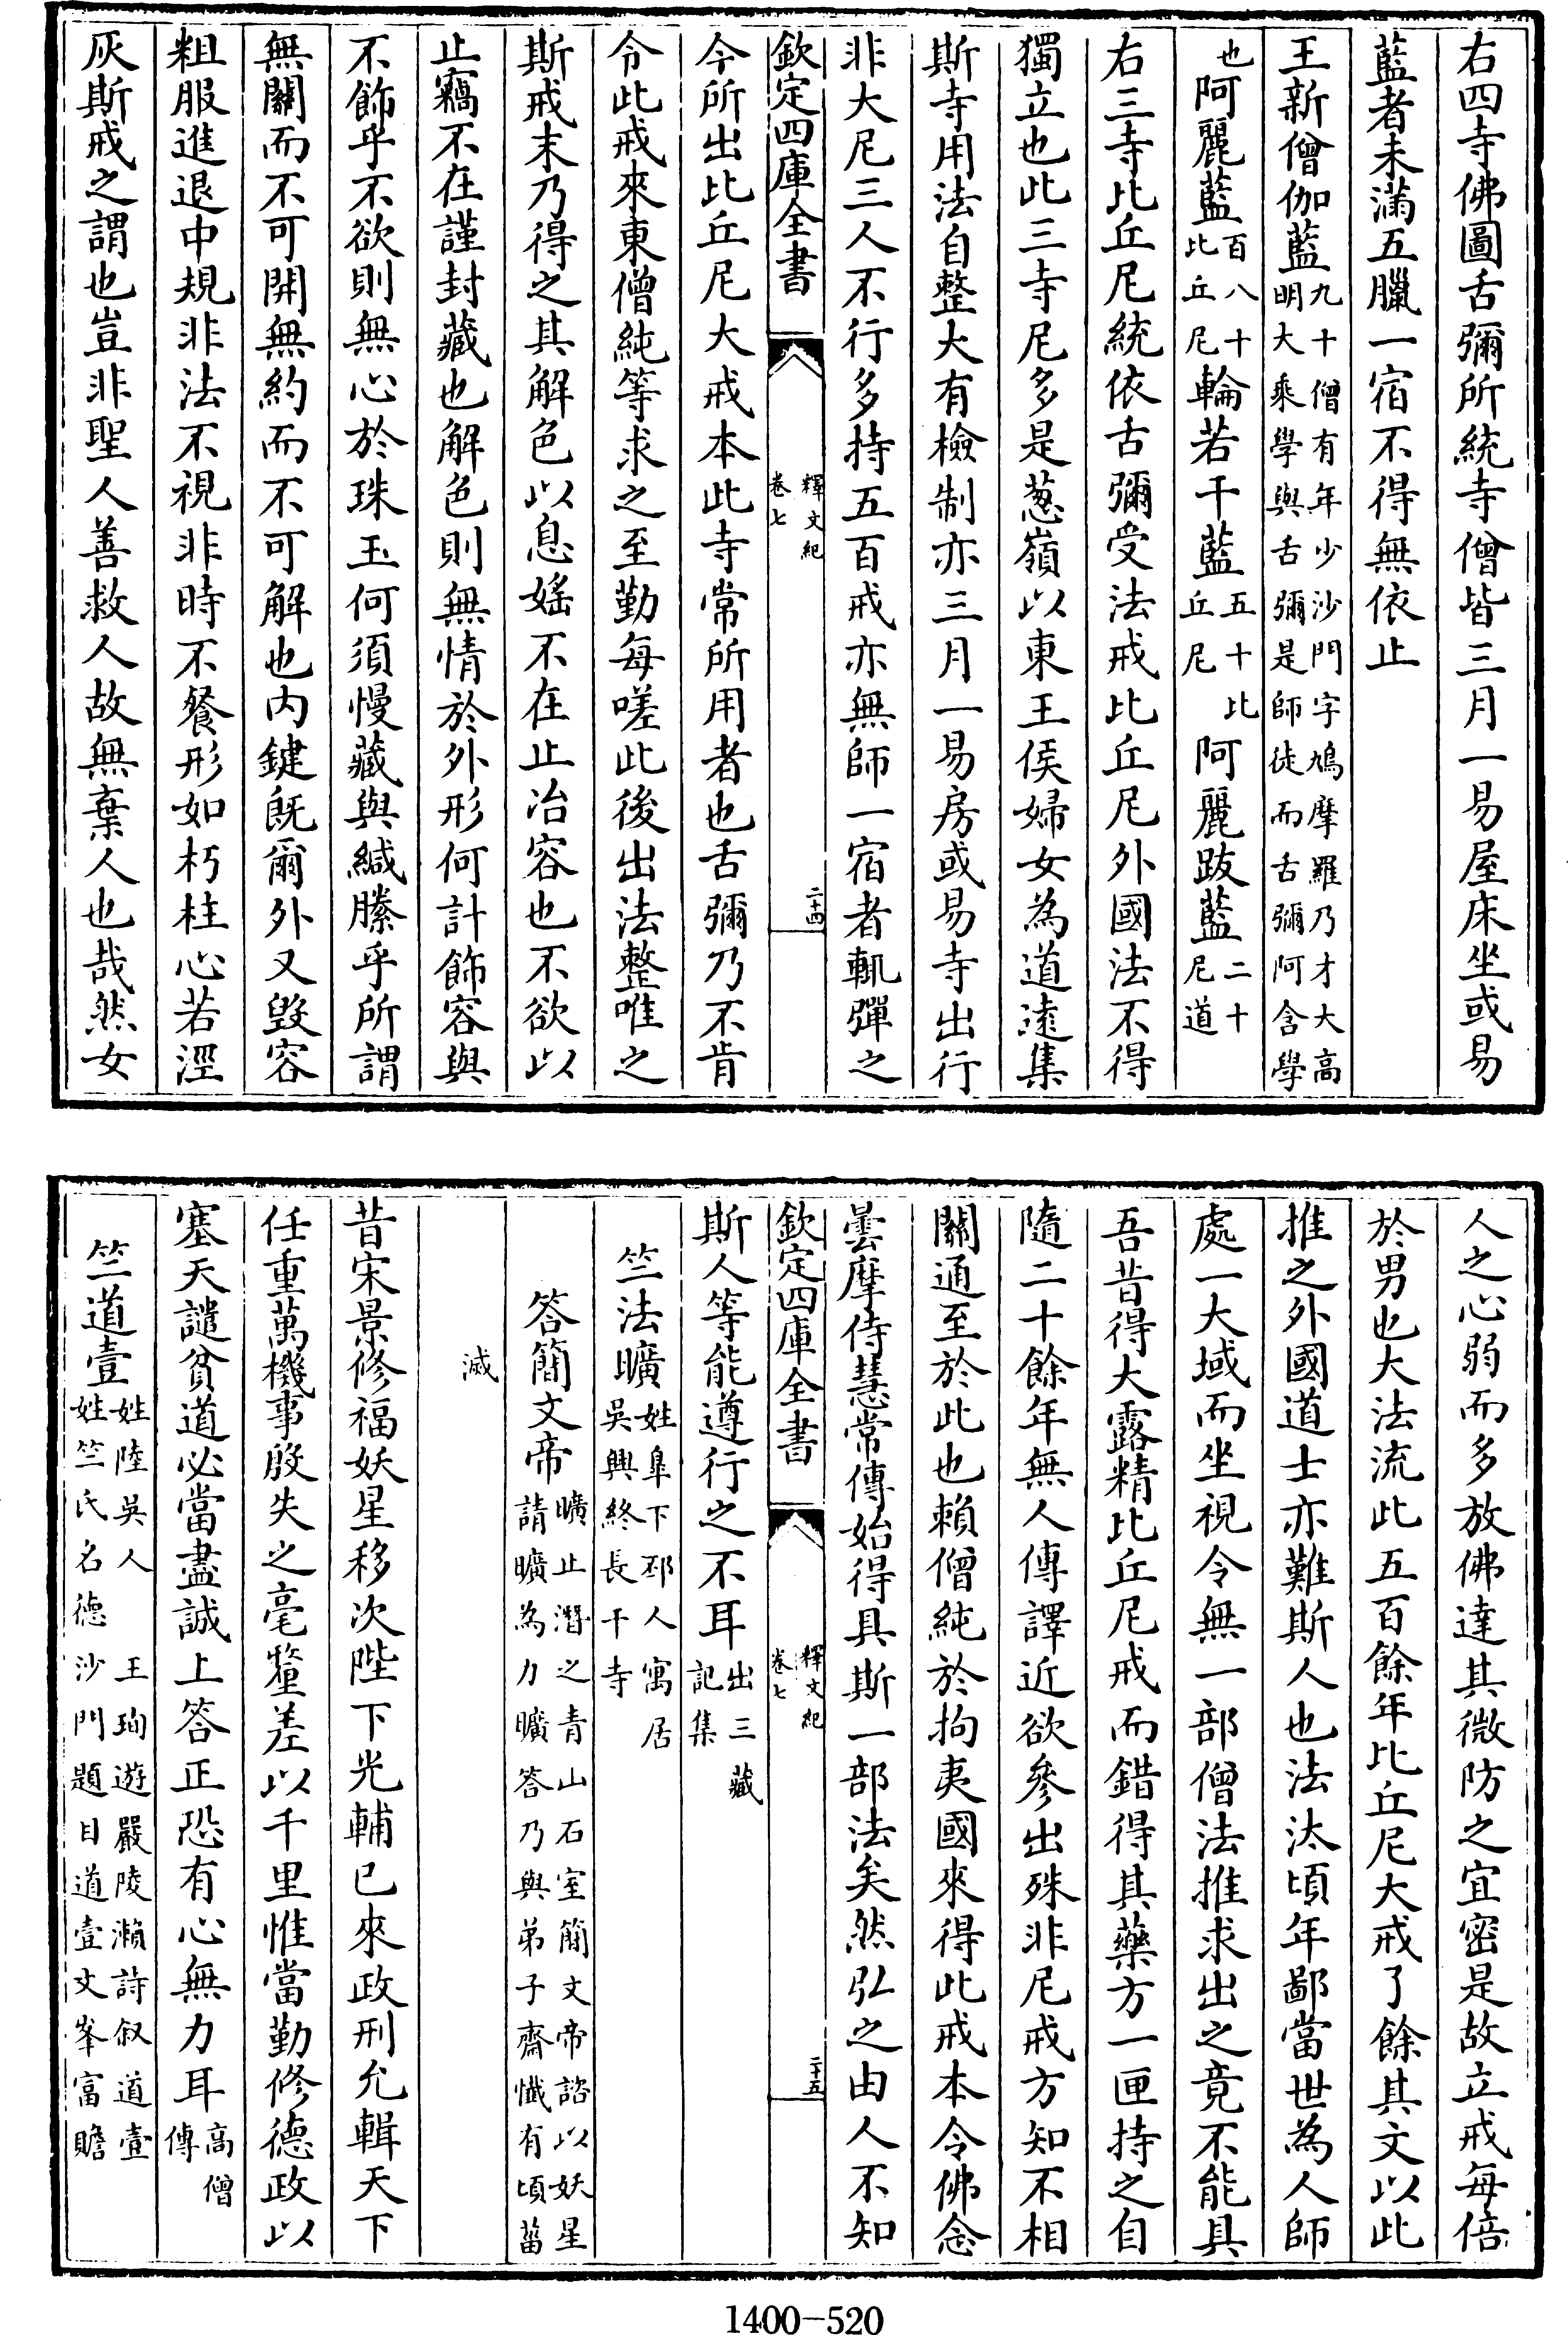 右四寺佛圖舌彌所統寺僧皆三月一易屋床坐或易
藍者未滿五臘一宿不得無依止
王新僧伽藍九十僧有年少沙門字鳩摩羅乃才大高明大乘學與舌彌是師徒而舌彌阿含學
也阿麗藍百八十比丘尼輪若干藍五十比丘尼阿麗跋藍二十尼道
右三寺比丘尼統依舌彌受法戒比丘尼外國法不得
獨立也此三寺尼多是葱嶺以東王侯婦女為道遠集
斯寺用法自整大有檢制亦三月一易房或易寺出行
非大尼三人不行多持五百戒亦無師一宿者輒彈之
欽定四庫全書 釋文紀 卷七 二十四
今所出比丘尼大戒本此寺常所用者也舌彌乃不肯
令此戒來東僧純等求之至勤每嗟此後出法整唯之
斯戒末乃得之其解色以息婬不在止冶容也不欲以
止竊不在謹封藏也解色則無情於外形何計飾容與
不飾乎不欲則無心於珠玉何須慢藏與緘縢乎所謂
無關而不可開無約而不可解也內鍵既爾外又毀容
粗服進退中規非法不視非時不餐形如朽柱心若溼
灰斯戒之謂也豈非聖人善救人故無棄人也哉然女
人之心弱而多放佛達其微防之宜密是故立戒每倍
於男也大法流此五百餘年比丘尼大戒了餘其文以此
推之外國道士亦難斯人也法汰頃年鄙當世為人師
處一大域而坐視令無一部僧法推求出之竟不能具
吾昔得大露精比丘尼戒而錯得其藥方一匣持之自
隨二十餘年無人傳譯近欲參出殊非尼戒方知不相
關通至於此也賴僧純於拘夷國來得此戒本令佛念
曇摩侍慧常傳始得具斯一部法矣然弘之由人不知
欽定四庫全書 釋文紀 卷七 二十五
斯人等能遵行之不耳出三藏記集
竺法曠姓皐下邳人寓居吳興終長干寺
答簡文帝曠止潛之青山石室簡文帝諮以妖星請曠為力曠答乃與弟子齋懺有頃菑
滅
昔宋景修福妖星移次陛下光輔已來政刑允輯天下
任重萬機事殷失之毫釐差以千里惟當勤修德政以
塞天譴貧道必當盡誠上答正恐有心無力耳高僧傳
竺道壹姓陸吳人 王珣遊嚴陵瀨詩叙道壹姓竺氏名德沙門題目道壹文峯富贍
1400-520